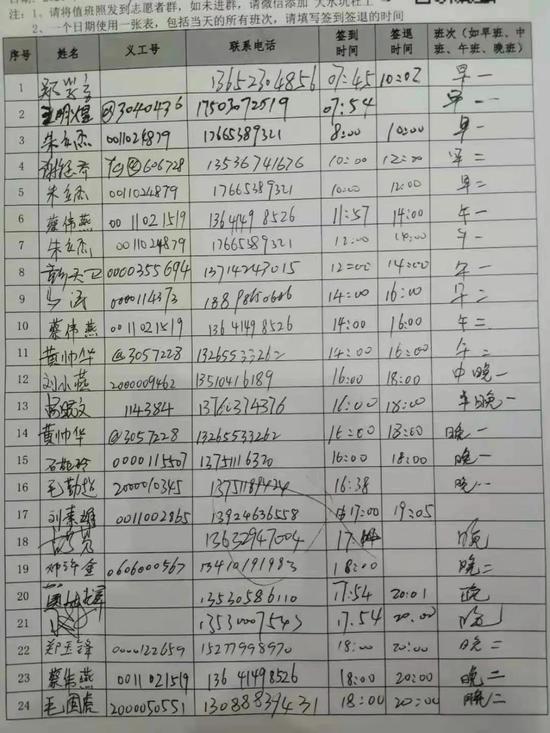 注：1、请将值班照发到志愿者群，如未进群，请微信添加"大水坑社工
2、一个日期使用一张表，包括当天的所有班次，请填写签到签退的时间
序号 姓名 义工号 联系电话 签到时间 签退时间 班次（如早班、中班、午班、晚班）
1 13652304856 07:45 10:02 早一
2 王明煌 @3040436 17503072519 07:54 早一
3 朱立杰 0011024879 17665389321 8:00 10:00 早一
4 606728 13536741676 10:00 12:00 早二
5 朱立杰 0011024879 17665389321 10:00 12:00 早二
6 蔡伟燕 0011021519 13641498526 11:57 14:00 午一
7 朱立杰 0011024879 17665389321 12:00 14:00 午一
8 彭天卫 0000355694 13714243015 12:00 14:00 午一
9 0000114373 14:00 16:00 午二
10 蔡伟燕 0011021519 13641498526 14:00 16:00 午二
11 黄帅华 @3057228 13265533262 14:00 16:00 午二
12 刘小燕 2000009462 13510416189 16:00 18:00 中晚一
13 114384 13760374376 16:00 18:00 晚一
14 黄帅华 @3057228 13265533262 16:00 18:00 晚一
15 0000115507 13751116320 16:00 18:00 晚一
16 毛勤 2000010345 16:38 晚一
17 刘素雄 0011002865 13924636558 17:00 19:05
18 13632947004 晚
19 0606000567 13410191983 18:00 晚二
20 13530586110 17:54 20:01 晚
21 17:54 20:00 晚
22 郑玉锋 0000122659 15277998970 18:00 20:00 晚二
23 蔡伟燕 0011021519 13641498526 18:00 20:00 晚二
24 毛国虎 2000050551 13088839431 18:00 20:00 晚二